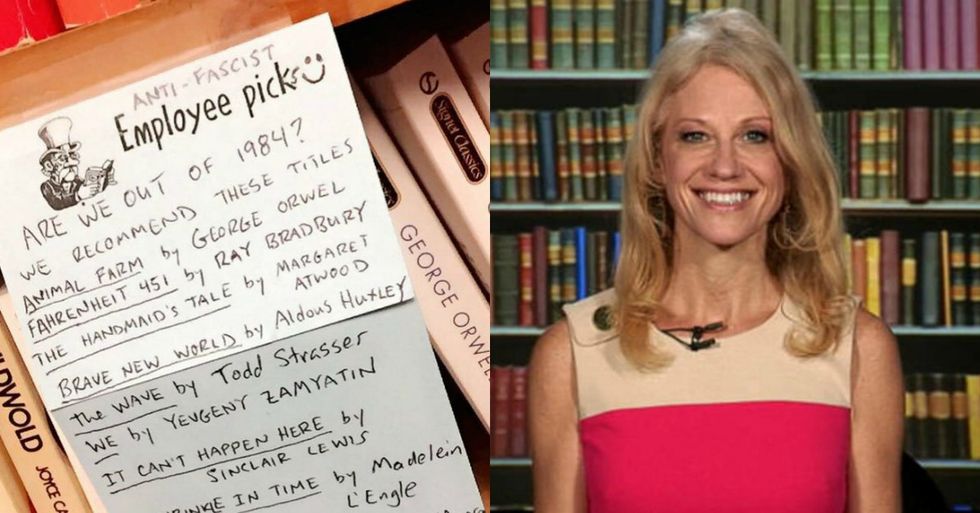 ANTI-FASCIST
Employee picks
ARE WE OUT OF 1984?
WE RECOMMEND THESE TITLES
ANIMAL FARM by GEORGE ORWEL
FAHRENHEIT 451 by RAY BRADBURY
THE HANDMAID'S TALE by MARGARET
ATWOOD
BRAVE NEW WORLD by Aldous Huxley
The WAVE by Todd Strasser
WE by YEVGENY ZAMYATIN
IT CAN'T HAPPEN HERE by
SINCLAIR LEWIS
IN TIME by Madelein
L'Engle
Signet Classics
GEORGE ORWEL
JOYCE